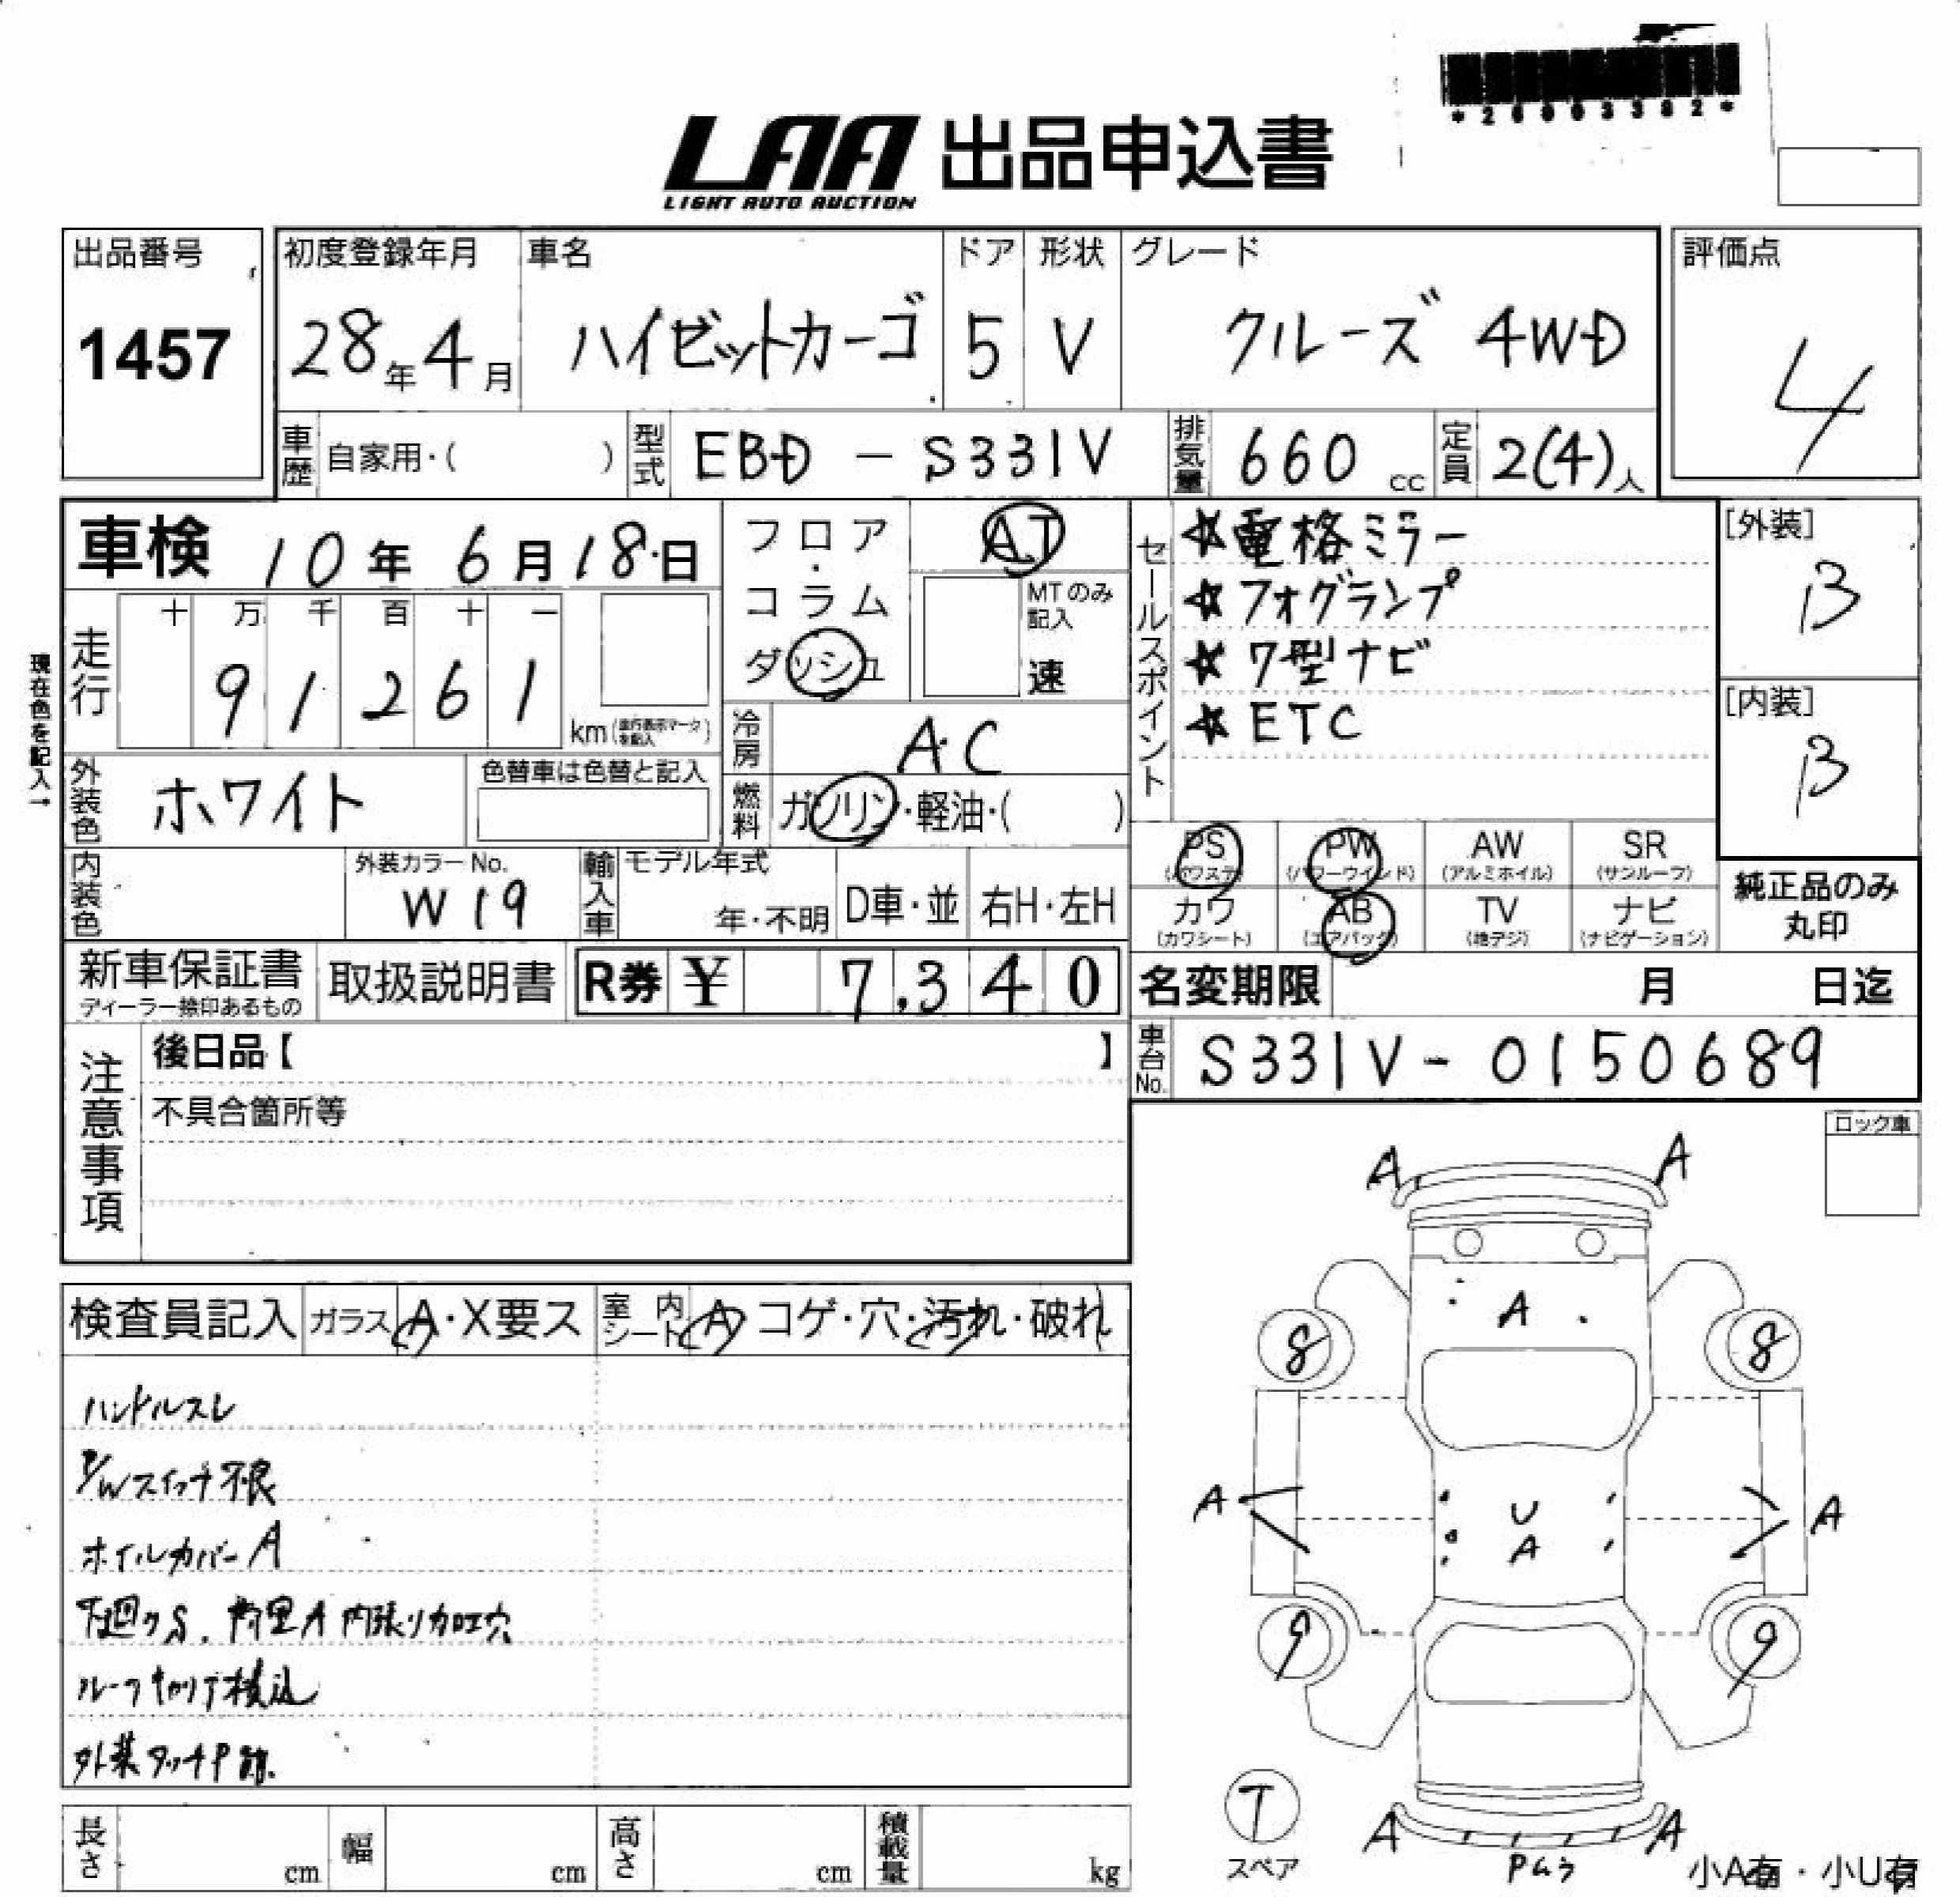 *26003382*
LAA 出品申込書
LIGHT AUTO AUCTION
出品番号
1457
初度登録年月
28年4月
車名
ハイゼットカーゴ
ドア
5
形状
V
グレード
クルーズ 4WD
評価点
4
車歴 自家用・( )
型式 EBD - S331V
排気量 660 cc
定員 2(4)人
車検 10年 6月18日
フロア・コラム ダッシュ
AT
MTのみ記入
速
セールスポイント
☆電格ミラー
☆フォグランプ
☆7型ナビ
☆ETC
[外装]
B
[内装]
B
現在色を記入→
走行
十 万 千 百 十 一
9 1 2 6 1
km(走行表示マークを記入)
冷房 AC
燃料 ガソリン・軽油・( )
外装色 ホワイト
色替車は色替と記入
内装色
外装カラーNo.
W19
輸入車
モデル年式
年・不明
D車・並
右H・左H
PS (パワステ)
PW (パワーウインド)
AW (アルミホイル)
SR (サンルーフ)
カワ (カワシート)
AB (エアバッグ)
TV (地デジ)
ナビ (ナビゲーション)
純正品のみ
丸印
新車保証書
ディーラー捺印あるもの
取扱説明書
R券 ¥ 7,340
名変期限 月 日迄
車台No. S331V-0150689
注意事項
後日品【 】
不具合箇所等
ロック車
検査員記入 ガラス A・X要ス 室内シート A コゲ・穴・汚れ・破れ
ハンドルスレ
P/Wスイッチ不良
ホイルカバーA
下廻りS. 荷室A 内張り加工穴
ルーフキャリア積込
外装タッチP跡.
A A
A
8 8
A U A
A
9 9
T
スペア
A A
小A有・小U有
長さ cm
幅 cm
高さ cm
積載量 kg